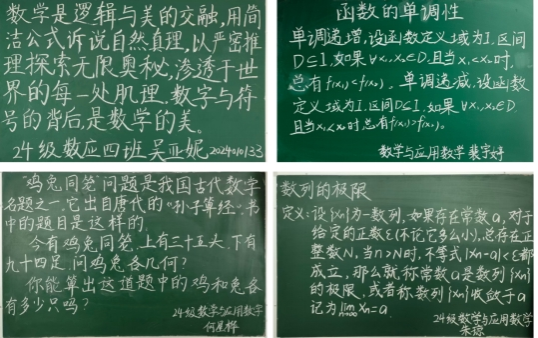 数学是逻辑与美的交融,用简
洁公式诉说自然真理,以严密推
理探索无限奥秘,渗透于世
界的每一处肌理.数字与符
号的背后,是数学的美。
24级数应四班吴亚妮
函数的单调性
单调递增,设函数定义域为I.区间
D⊆I,如果∀x₁,x₂∈D.且当x₁<x₂时,
总有f(x₁)<f(x₂)。单调递减,设函数
定义域为I.区间D⊆I,如果∀x₁,x₂∈D.
且当x₁<x₂时总有f(x₁)>f(x₂)。
数学与应用数学 裴宇婷
“鸡兔同笼”问题是我国古代数学
名题之一.它出自唐代的“孙子算经”.书
中的题目是这样的.
今有鸡兔同笼,上有三十五头.下有
九十四足.问鸡兔各几何?
你能算出这道题中的鸡和兔各
有多少只吗?
24级数学与应用数学
数列的极限
定义:设{xn}为一数列,如果存在常数a,对于
给定的正数ε(不论它多么小),总存在正
整数N,当n>N时,不等式|xn-a|<ε都
成立,那么就称常数a是数列{xn}
的极限,或者称数列{xn}收敛于a
记为lim xn=a
n→∞
24级数学与应用数学
朱琼